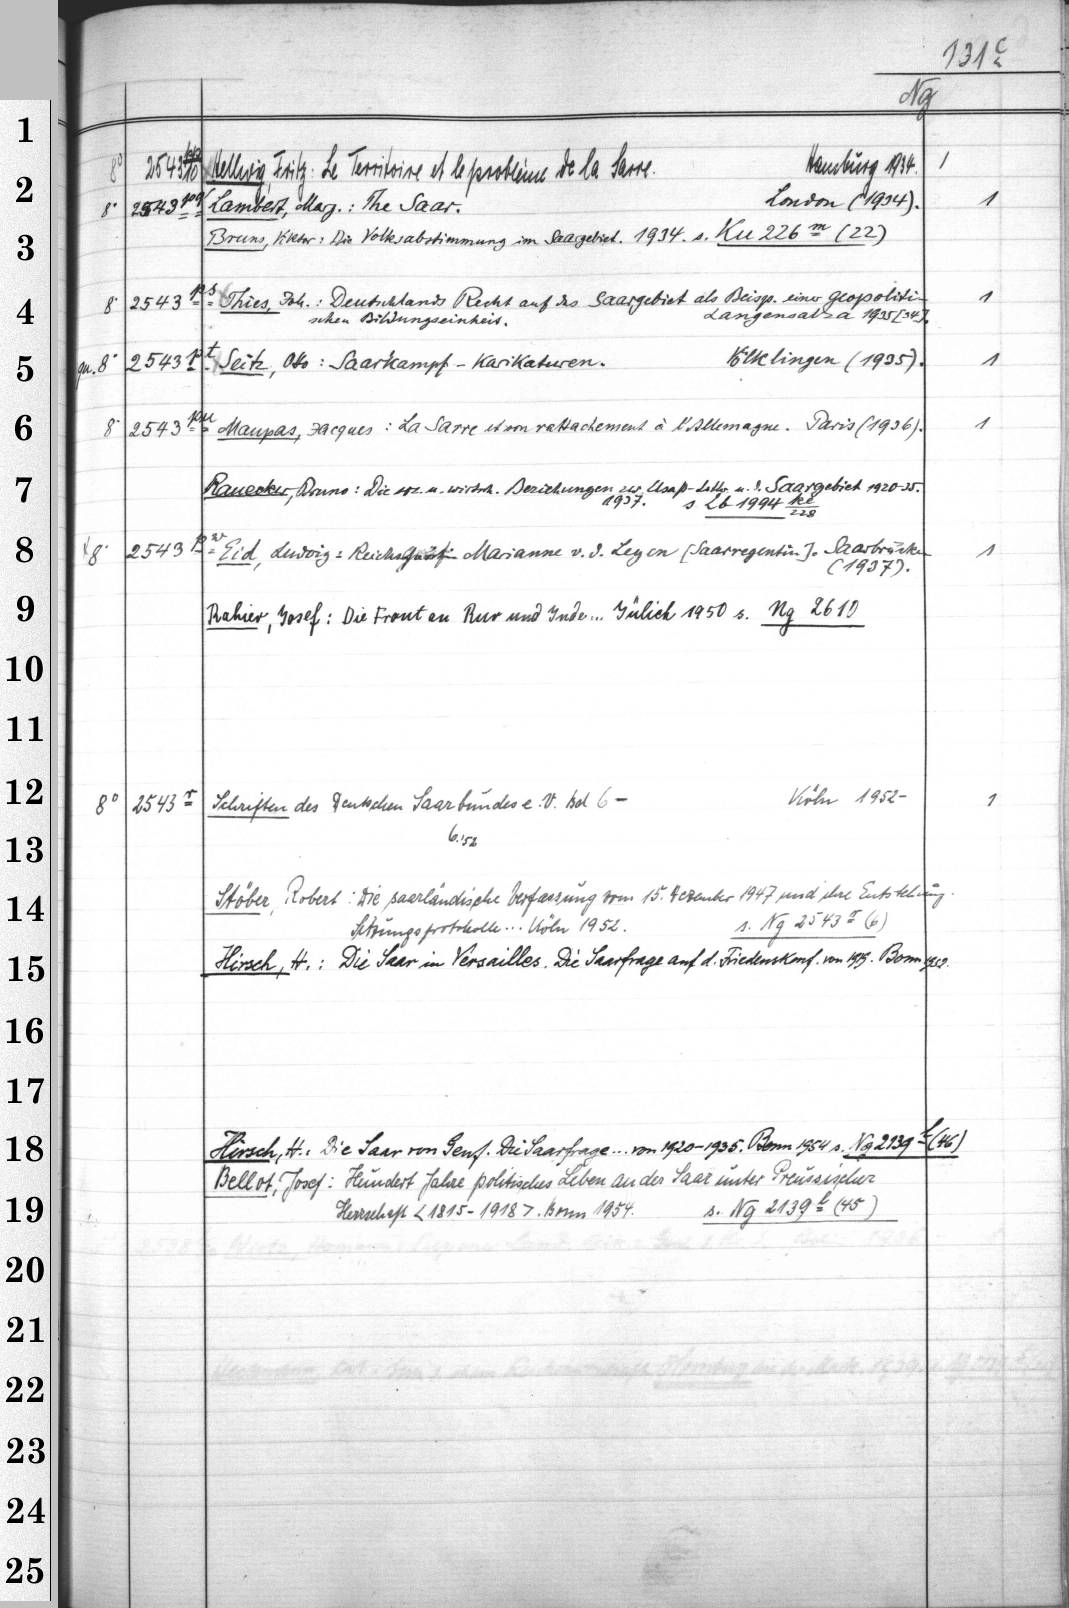 131 c
Ng
1
8° 2543 Hellwig, Fritz: Le Territoire et le problème de la Sarre. Hamburg 1934. 1
2
8° 2543 pq Lambert, Marg.: The Saar. London (1934). 1
3
Bruns, Viktor: Die Volksabstimmung im Saargebiet. 1934. s. Ku 226 m (22)
4
8° 2543 ps Thies, Joh.: Deutschlands Recht auf das Saargebiet als Beisp. einer geopoliti- 1
schen Bildungseinheit. Langensalza 1935 [34].
5
qu. 8° 2543 pt Seitz, Otto: Saarkampf-Karikaturen. Völklingen (1935). 1
6
8° 2543 pu Maupas, Jacques: La Sarre et son rattachement à l'Allemagne. Paris (1936). 1
7
Rauecker, Bruno: Die soz. u. wirtsch. Beziehungen zw. Elsaß-Lothr. u. d. Saargebiet 1920-35.
1937. s Lb 1994 ke/228
8
8° 2543 pw Eid, Ludwig: Reichsgräfin Marianne v. d. Leyen [Saarregentin]. Saarbrücken 1
(1937).
9
Rahier, Josef: Die Front an Rur und Inde... Jülich 1950 s. Ng 2610
10
11
12
8° 2543 r Schriften des Deutschen Saarbundes e. V. Bd 6- Köln 1952- 1
6.'52
13
14
Stöber, Robert: Die saarländische Verfassung vom 15. Dezember 1947 und ihre Entstehung.
Sitzungsprotokolle... Köln 1952. s. Ng 2543 r (6)
15
Hirsch, H.: Die Saar in Versailles. Die Saarfrage auf d. Friedenskonf. von 1919. Bonn 1952.
16
17
18
Hirsch, H.: Die Saar von Genf. Die Saarfrage... von 1920-1935. Bonn 1954 s. Ng 2139 l (46)
Bellot, Josef: Hundert Jahre politisches Leben an der Saar unter Preussischer
19
Herrschaft <1815-1918>. Bonn 1954. s. Ng 2139 l (45)
20
21
22
23
24
25